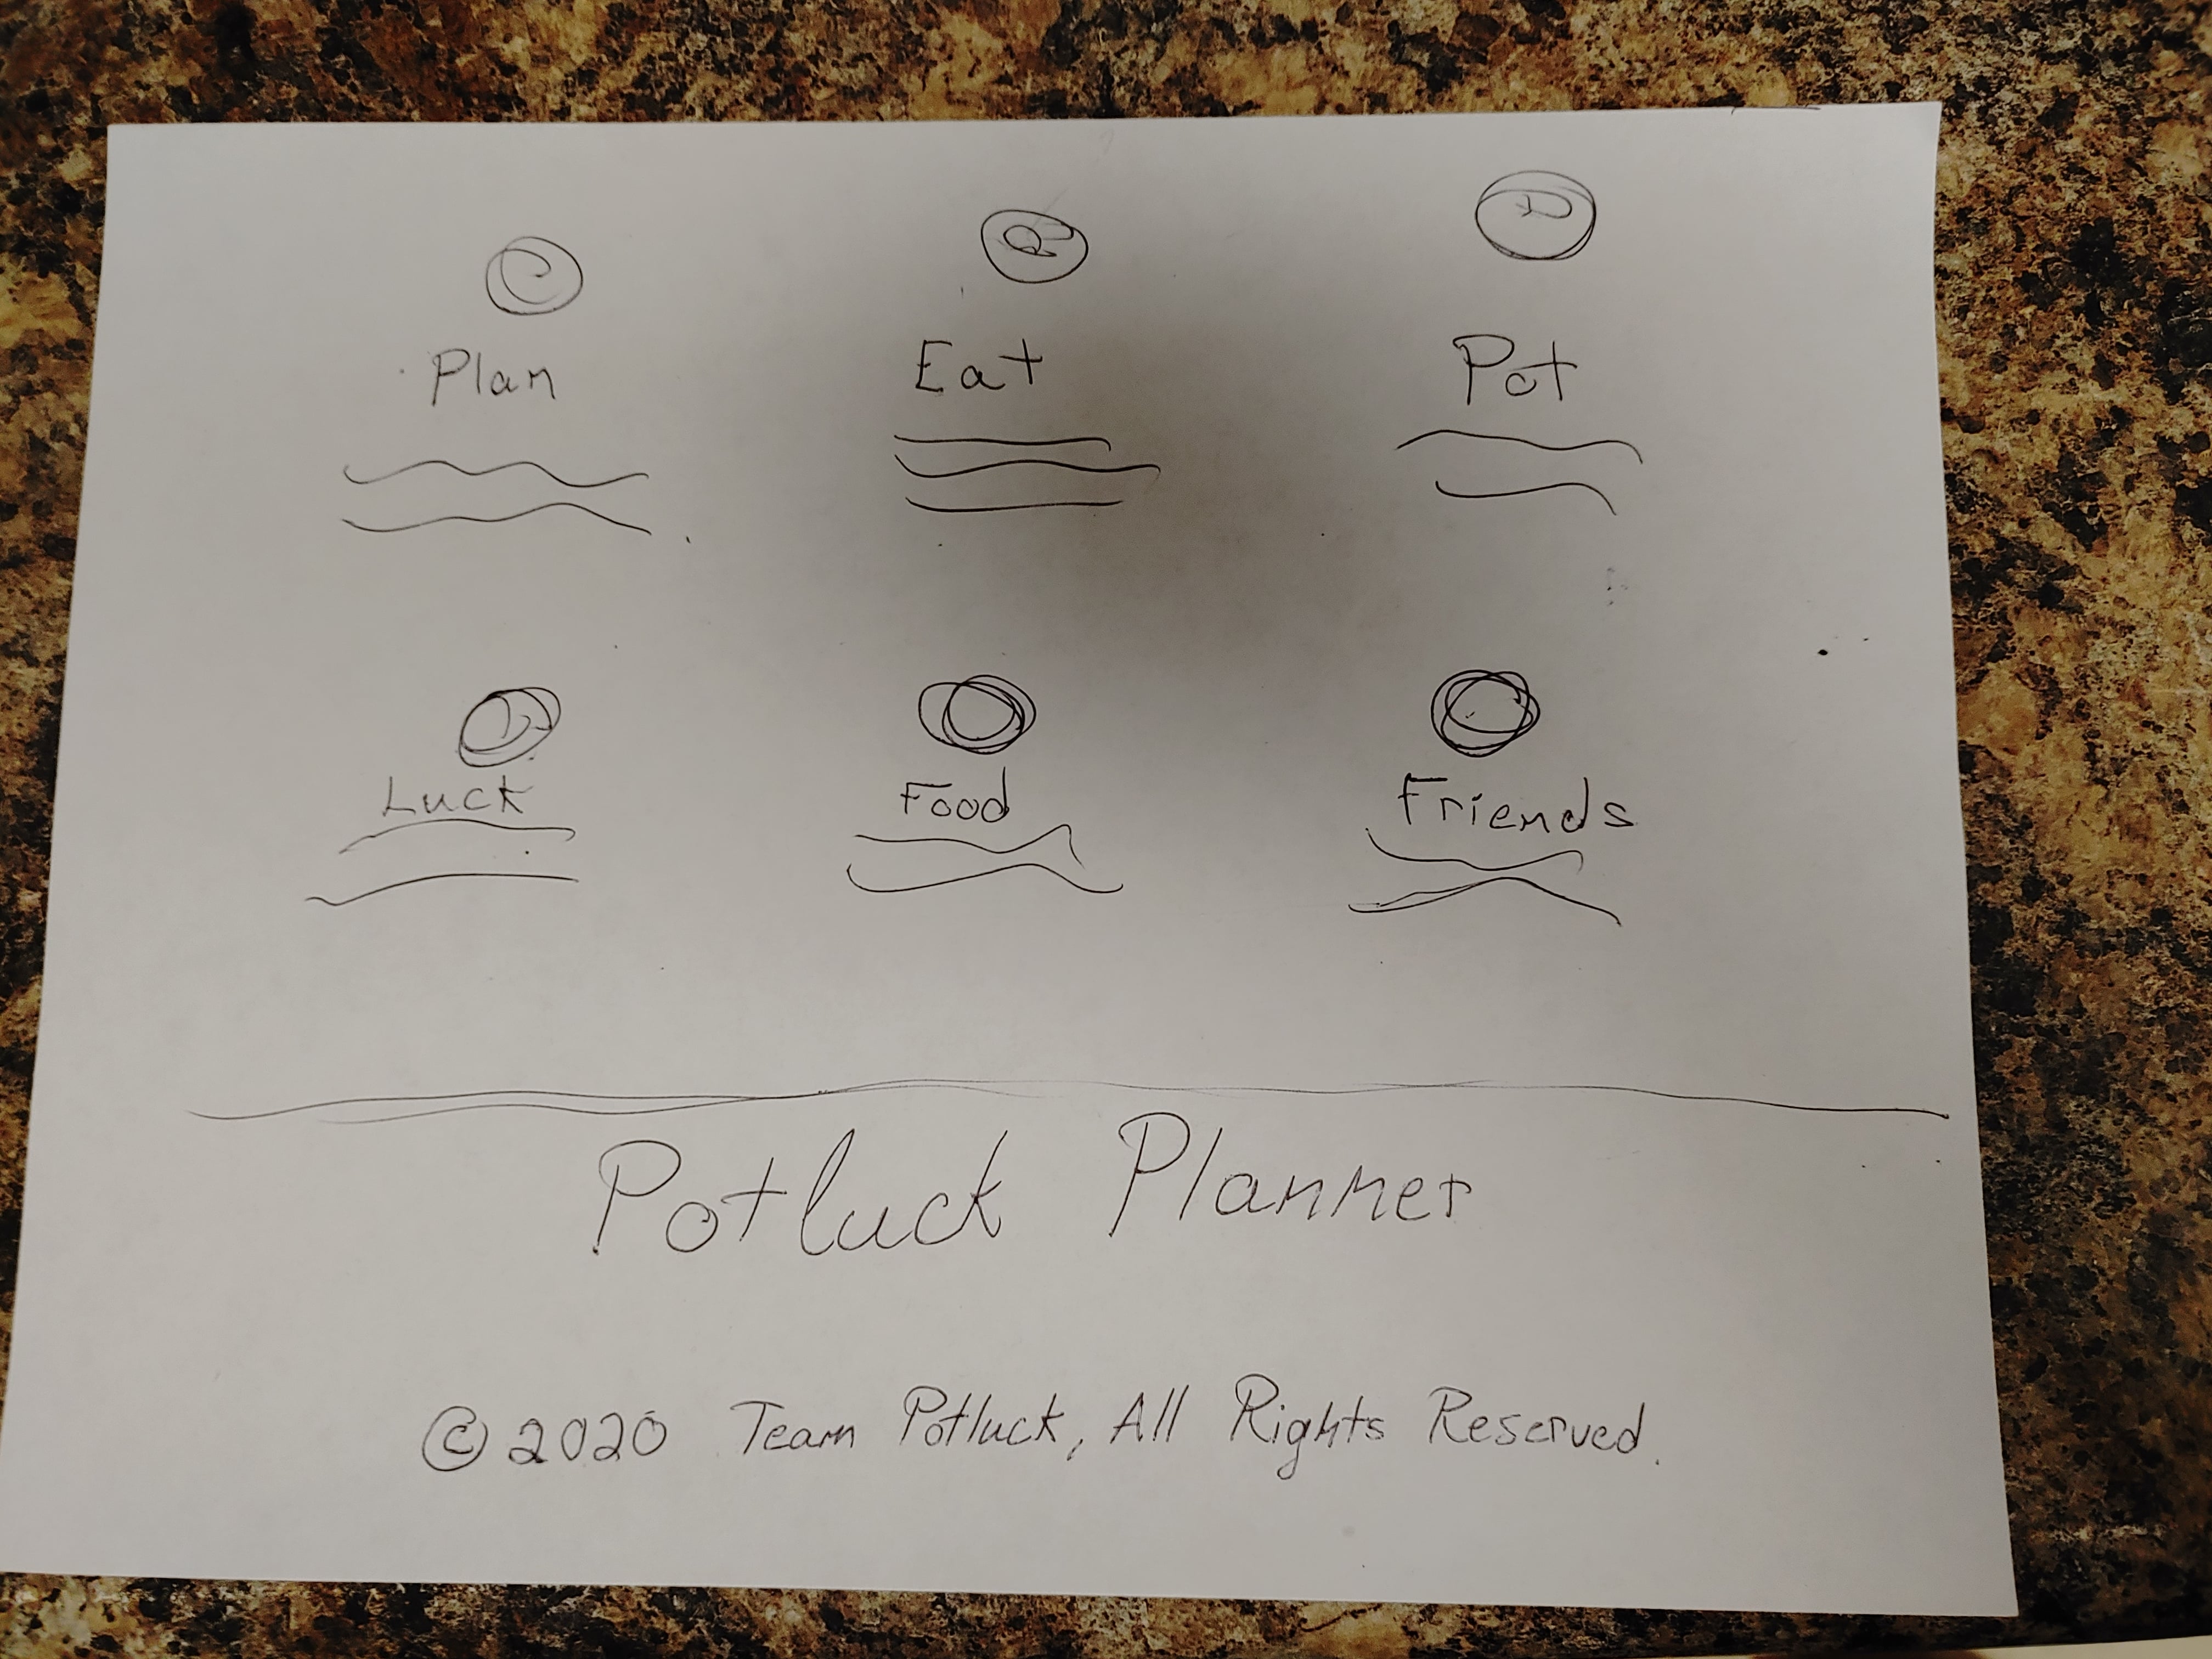 Plan Eat Pot
Luck Food Friends
Potluck Planner
© 2020 Team Potluck, All Rights Reserved.